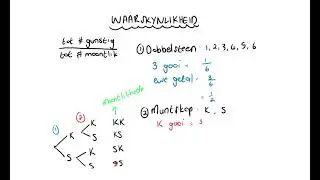 WAARSKYNLIKHEID
tot # gunstig
tot # moontlik
① Dobbelsteen : 1, 2, 3, 4, 5, 6
3 gooi = 1/6
ewe getal = 3/6
= 1/2
② Muntstop : K , S
K gooi =
moontlikhede
① ②
K
S
K
S
K
S
KK
KS
SK
SS